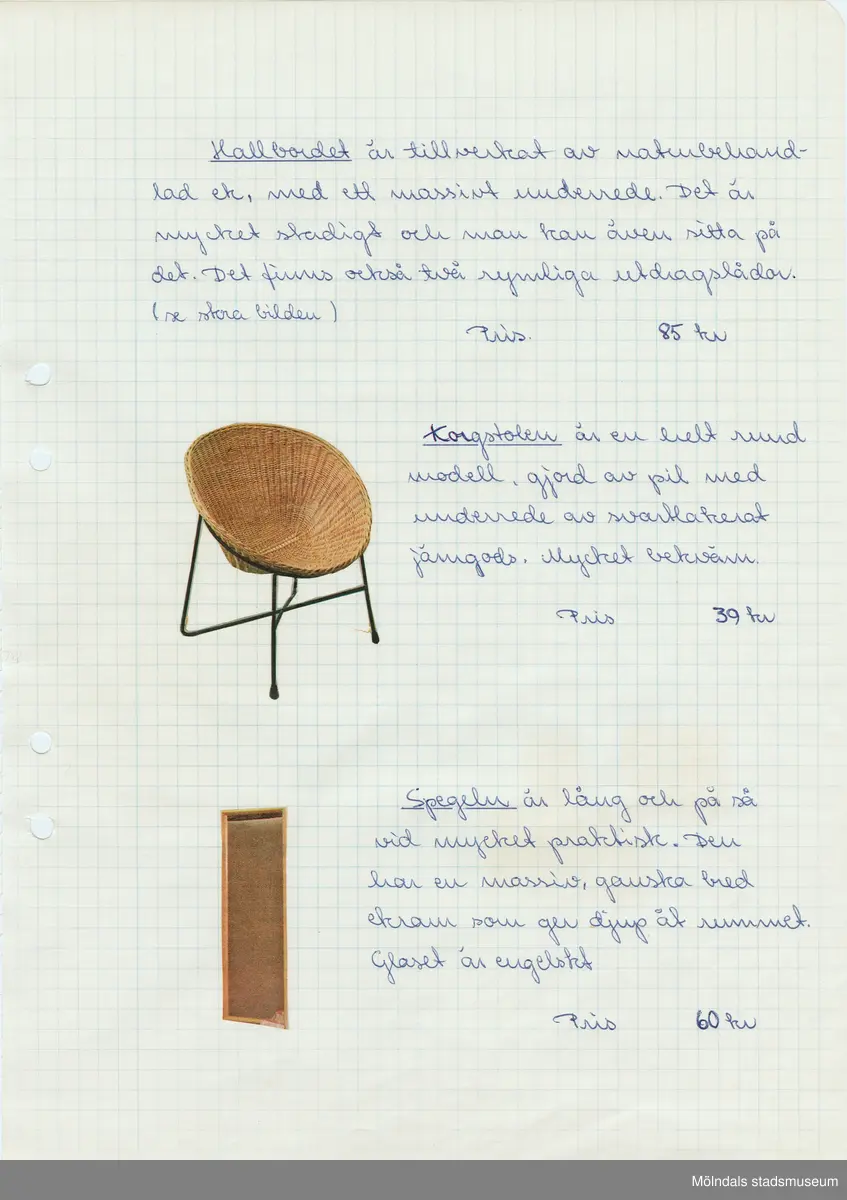 Hallbordet är tillverkat av naturbehand-
lad ek, med ett massivt underrede. Det är
mycket stadigt och man kan även sitta på
det. Det finns också två rymliga utdragslådor.
(se stora bilden)
Pris. 85 kr
Korgstolen är en helt rund
modell, gjord av pil med
underrede av svartlakerat
järngods. Mycket bekväm.
Pris 39 kr
Spegeln är lång och på så
vid mycket praktisk. Den
har en massiv, ganska bred
ekram som ger djup åt rummet.
Glaset är engelskt
Pris 60 kr
Mölndals stadsmuseum